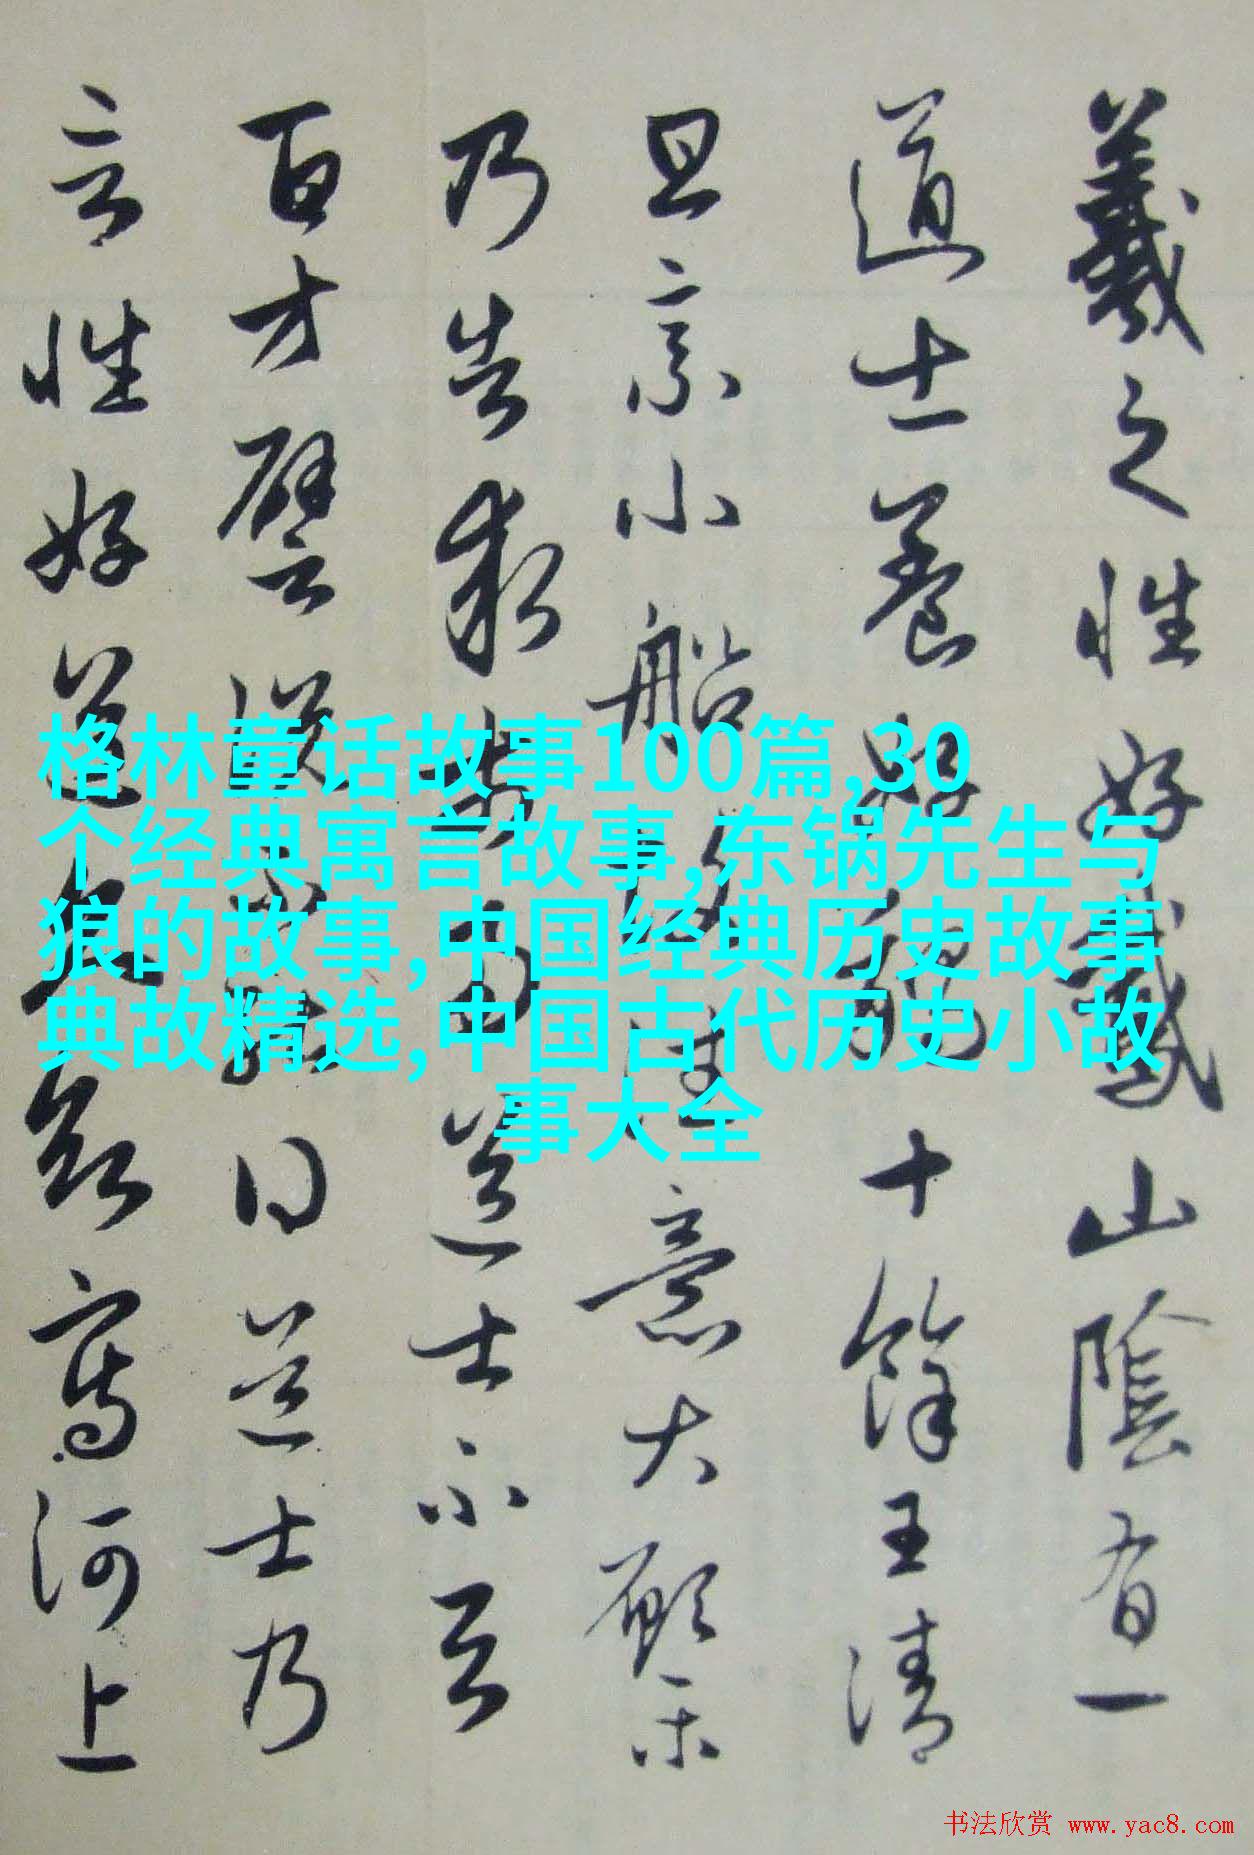 羲之性好鵞山陰有一
道士養好鵝十餘王清
旦乘小船故往意大願樂
乃告求市易道士不与
百方譬説不能得道士乃
言性好道久欲寫河上
格林童话故事100篇,30
个经典寓言故事,东锅先生与
狼的故事,中国经典历史故事
典故精选,中国古代历史小故
事大全
书法欣赏 www.yac8.com